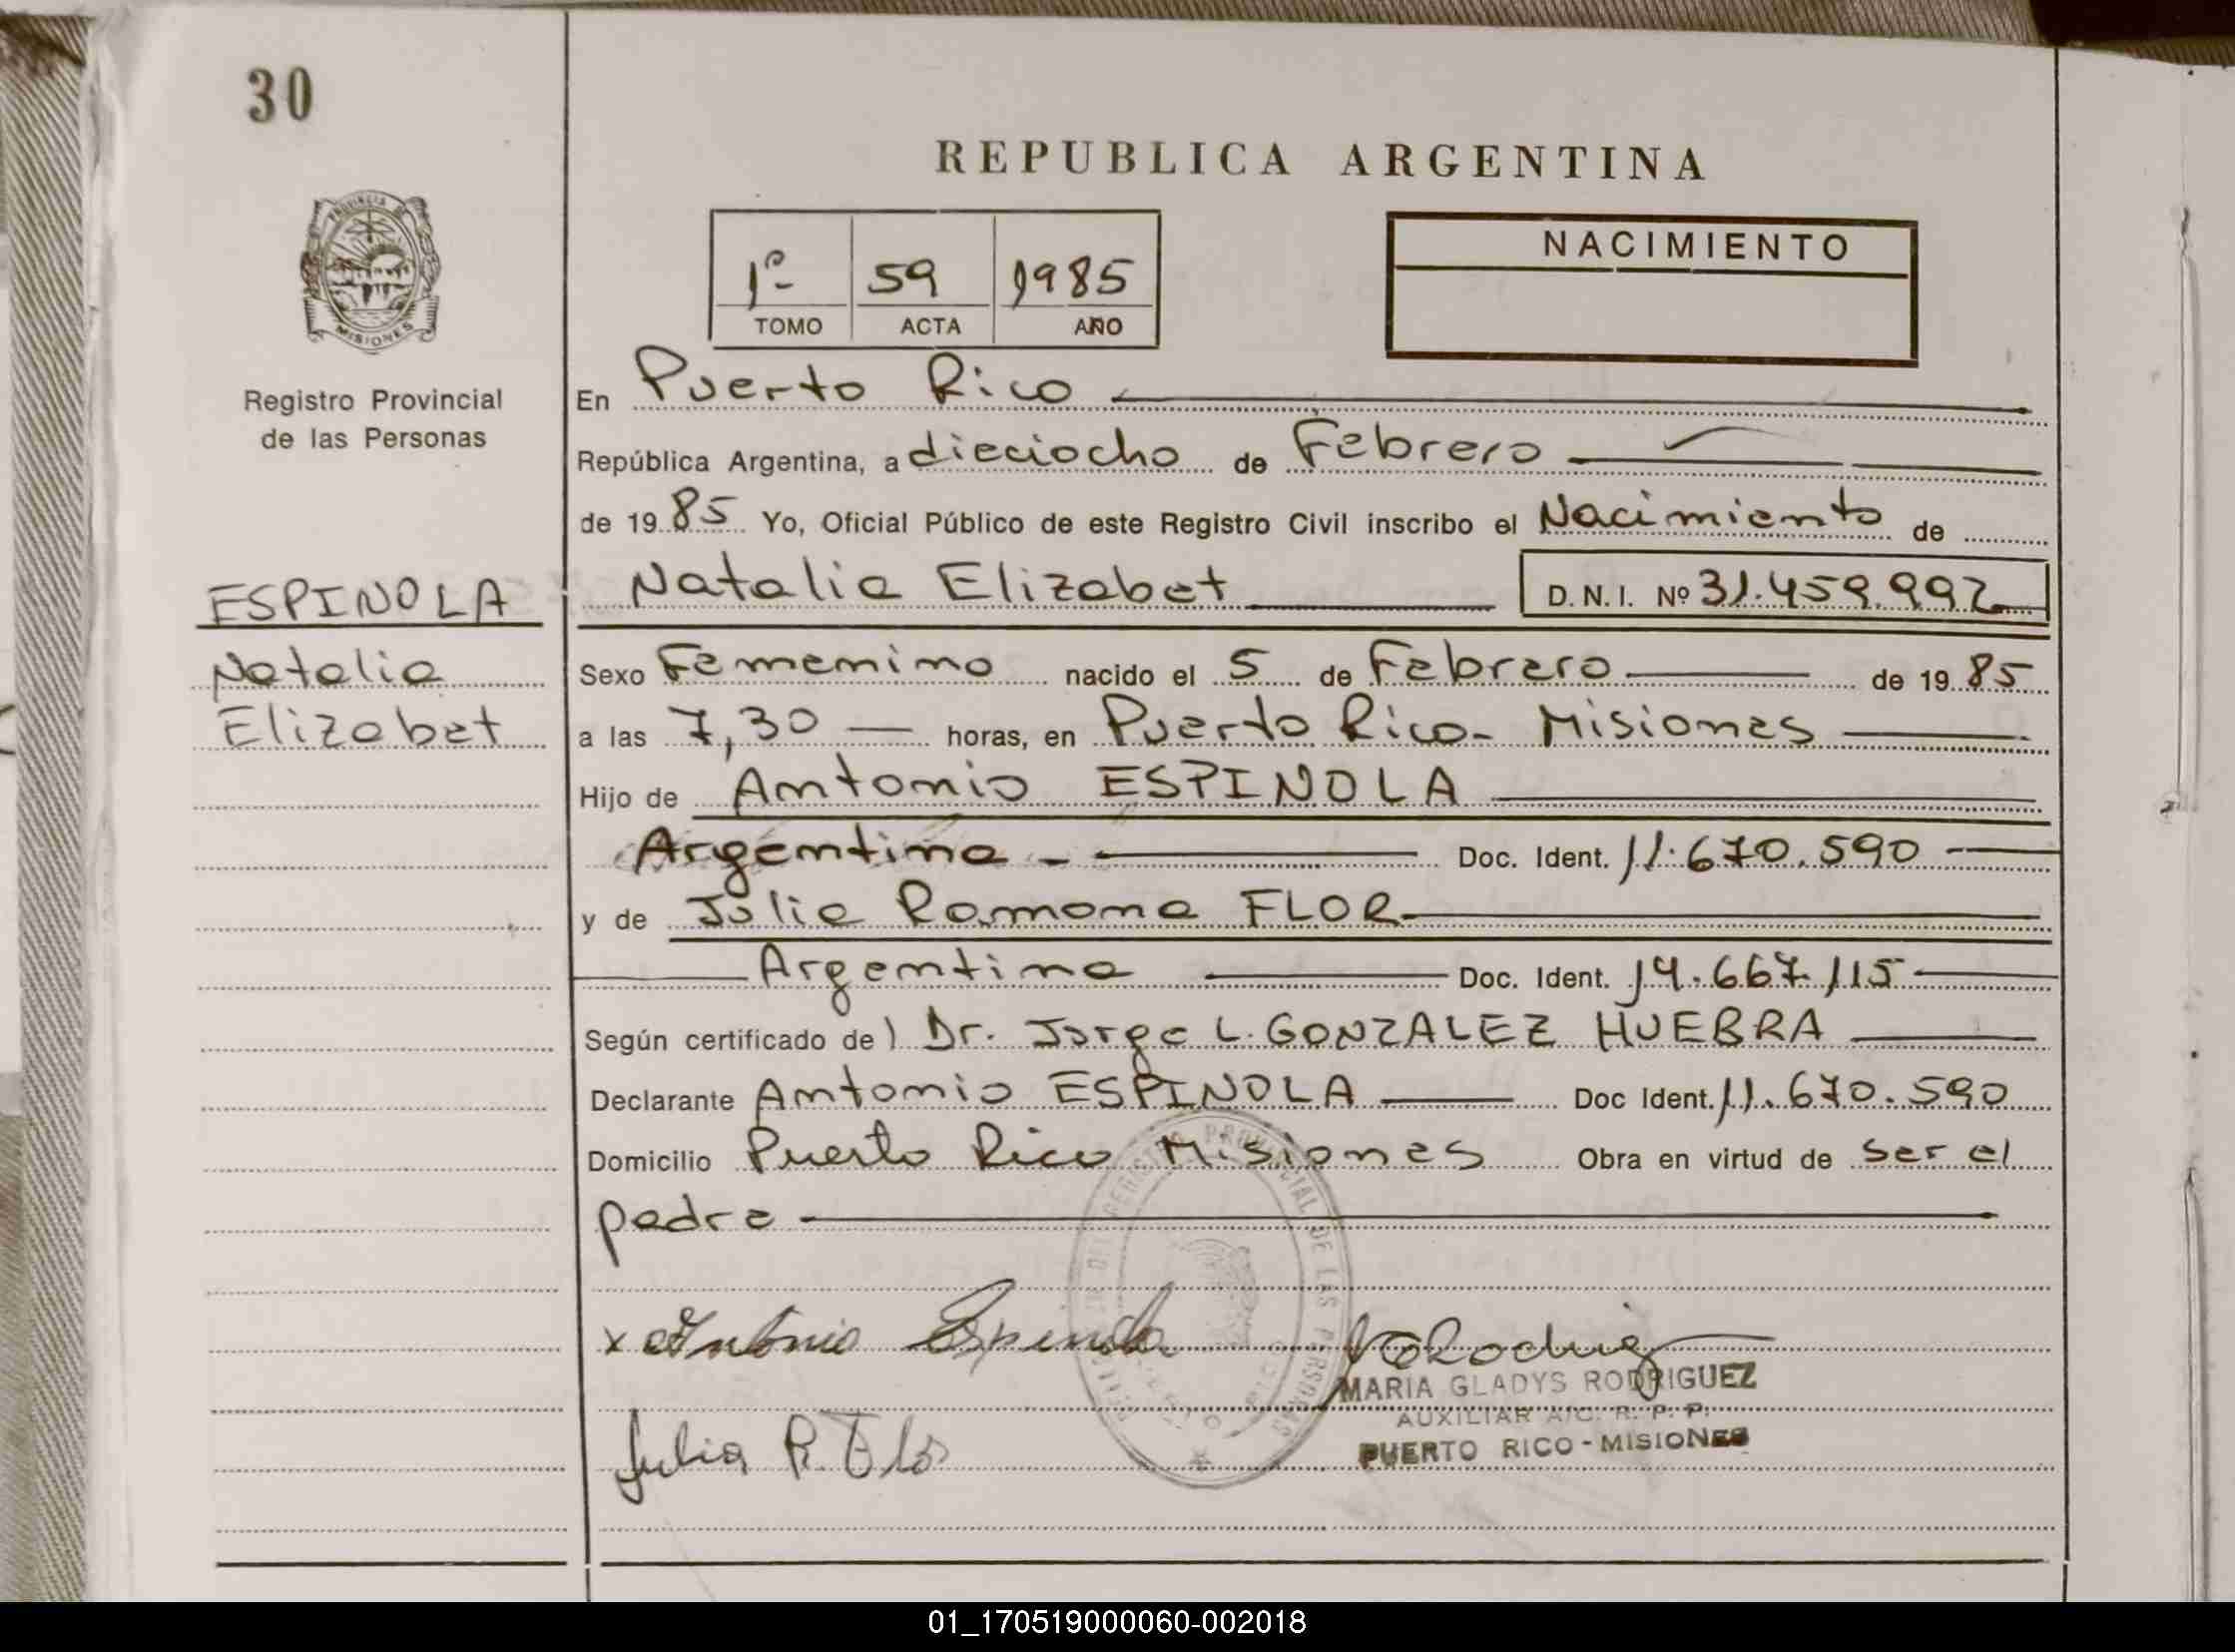 30
REPUBLICA ARGENTINA
PROVINCIA DE
MISIONES
Registro Provincial
de las Personas
1º 59 1985
TOMO ACTA AÑO
NACIMIENTO
En Puerto Rico
República Argentina, a dieciocho de Febrero
de 1985 Yo, Oficial Público de este Registro Civil inscribo el Nacimiento de
ESPINOLA
Natalia
Elizabet
Natalia Elizabet D.N.I. Nº 31.459.992
Sexo Femenino nacido el 5 de Febrero de 1985
a las 7,30 horas, en Puerto Rico - Misiones
Hijo de Antonio ESPINOLA
Argentino - Doc. Ident. 11.670.590
y de Julia Ramona FLOR
Argentina Doc. Ident. 14.667.115
Según certificado de) Dr. Jorge L. GONZALEZ HUEBRA
Declarante Antonio ESPINOLA Doc Ident. 11.670.590
Domicilio Puerto Rico Misiones Obra en virtud de ser el
padre
x Antonio Espinola
MARIA GLADYS RODRIGUEZ
AUXILIAR A/C. R. P. P.
PUERTO RICO - MISIONES
Julia R. Flor
01_170519000060-002018